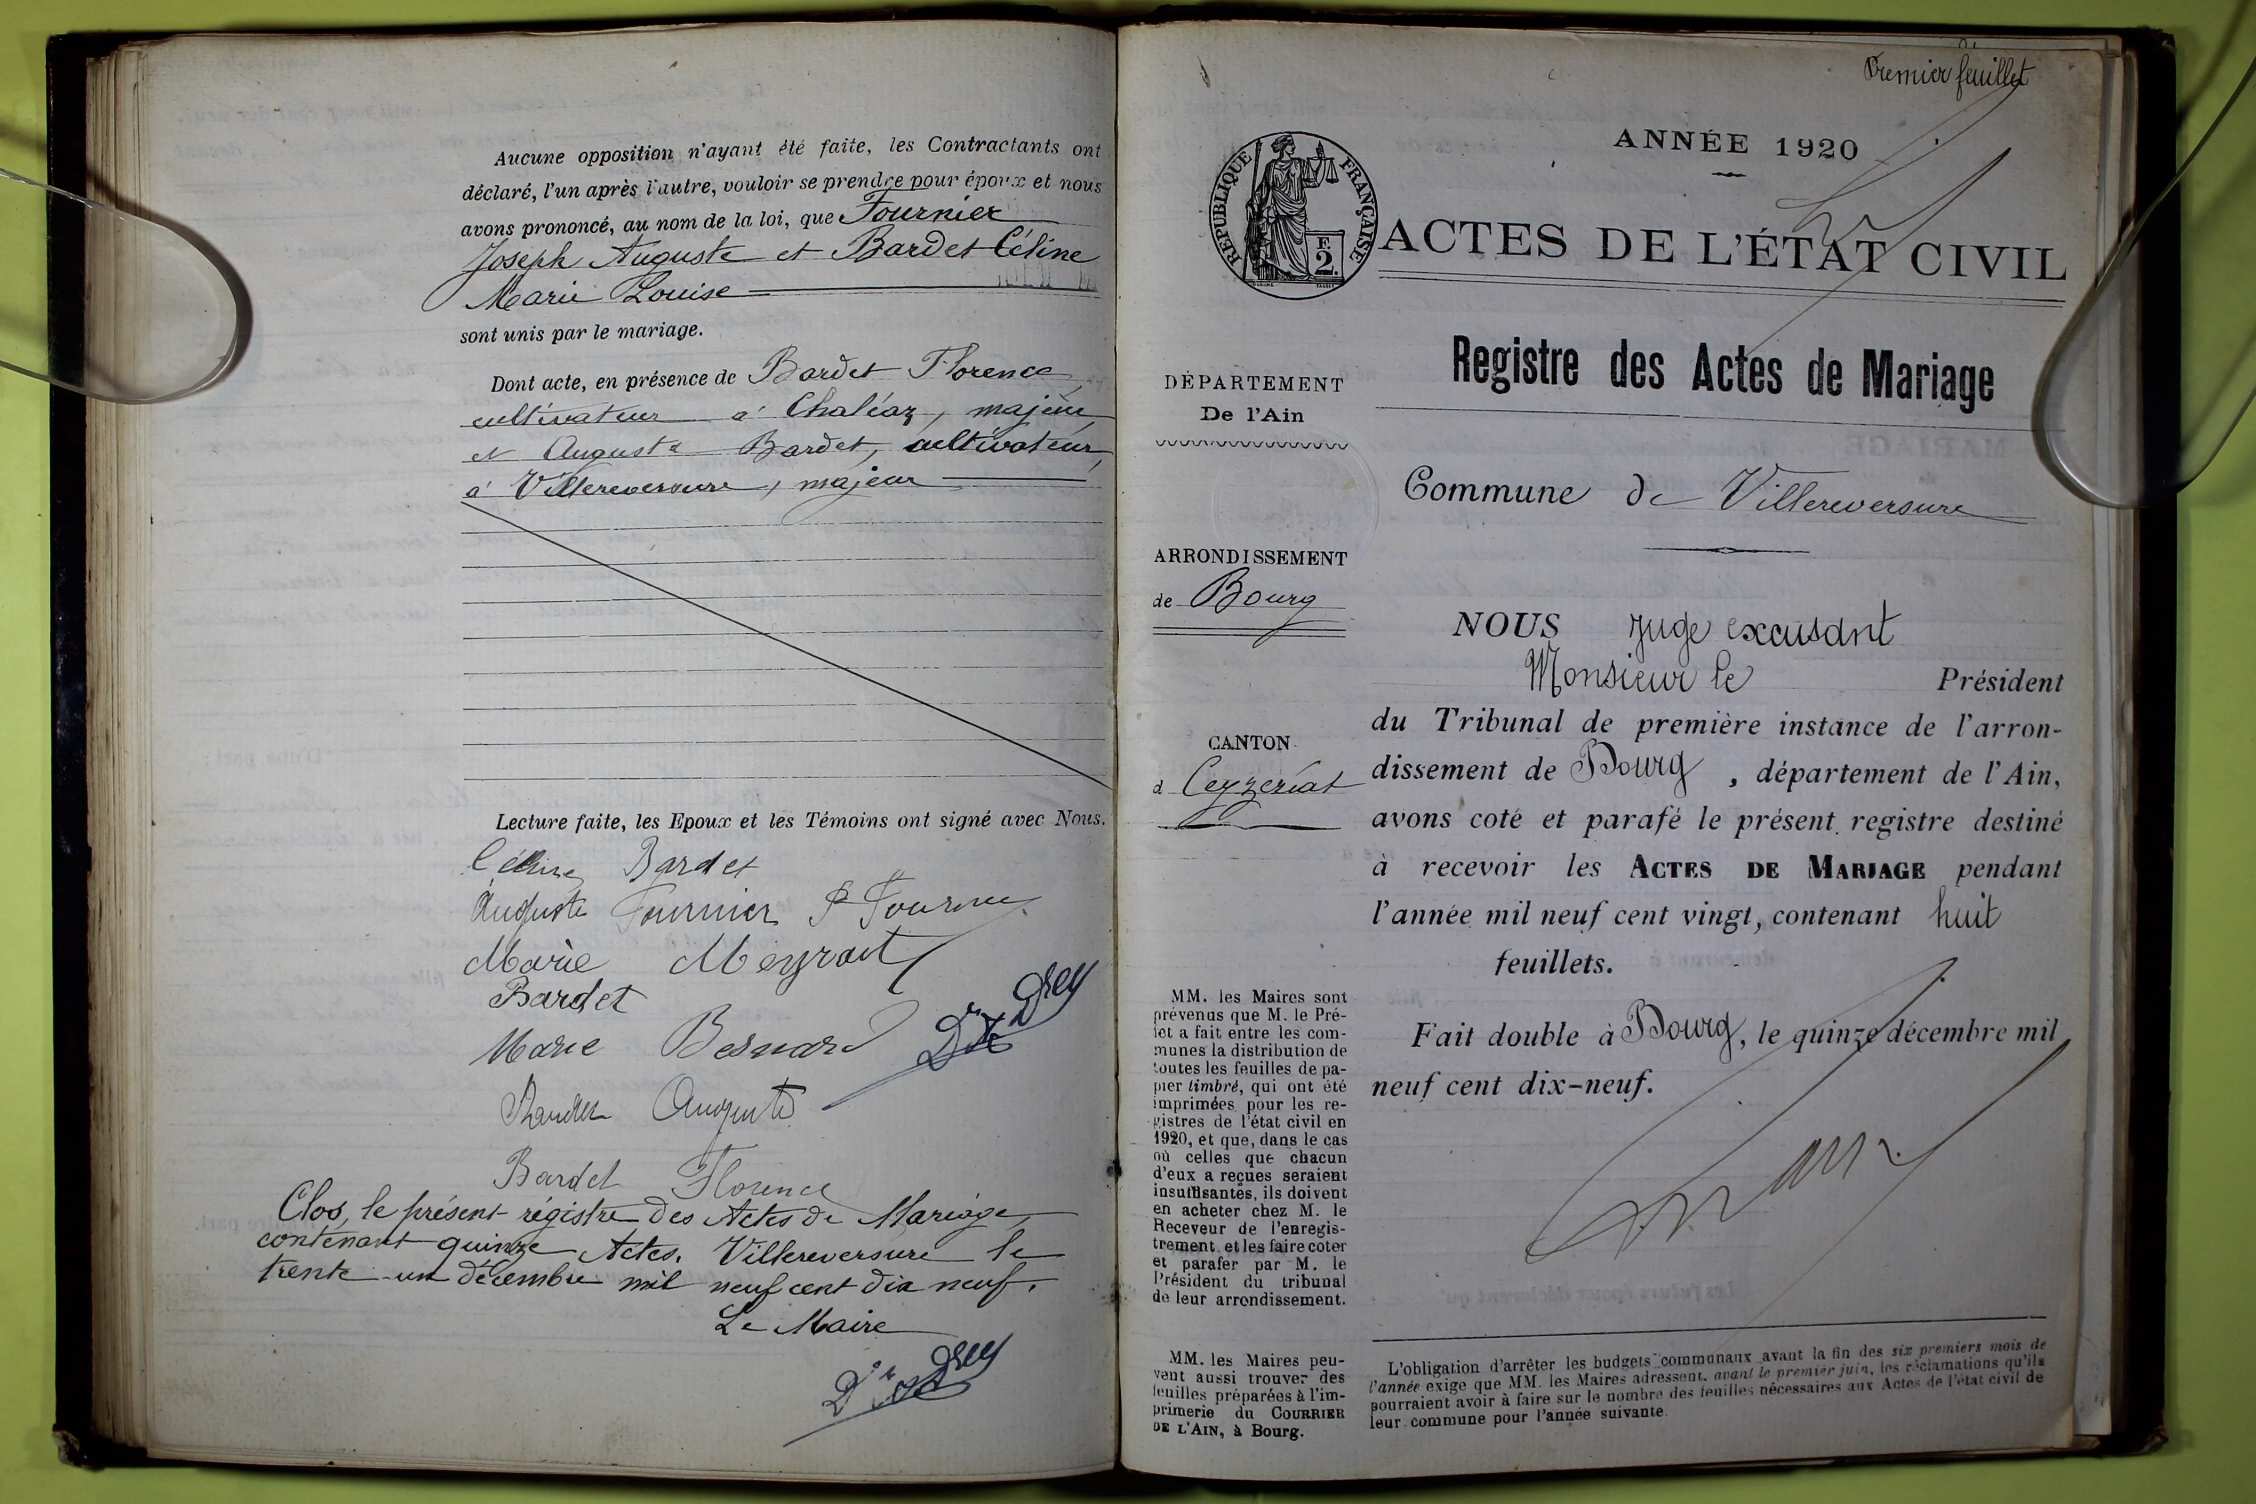 Aucune opposition n'ayant été faite, les Contractants ont
déclaré, l'un après l'autre, vouloir se prendre pour époux et nous
avons prononcé, au nom de la loi, que Fournier
Joseph Auguste et Bardet Céline
Marie Louise
sont unis par le mariage.
Dont acte, en présence de Bardet Florence,
cultivateur à Chaléaz, majeur
et Auguste Bardet, cultivateur,
à Villereversure, majeur
Lecture faite, les Epoux et les Témoins ont signé avec Nous.
Céline Bardet
Auguste Fournier
Marie
Bardet
Marie Besnard
Auguste
Bardet Florence
Clos, le présent régistre des Actes de Mariage,
contenant quinze Actes. Villereversure le
trente-un décembre mil neuf cent dix neuf.
Le Maire
Premier feuillet
ANNÉE 1920
RÉPUBLIQUE FRANÇAISE
F.
2.
ACTES DE L'ÉTAT CIVIL
Registre des Actes de Mariage
Commune de Villereversure
DÉPARTEMENT
De l'Ain
ARRONDISSEMENT
de Bourg
CANTON
d Ceyzeriat
MM. les Maires sont
prévenus que M. le Pré-
fet a fait entre les com-
munes la distribution de
toutes les feuilles de pa-
pier timbré, qui ont été
imprimées pour les re-
gistres de l'état civil en
1920, et que, dans le cas
où celles que chacun
d'eux a reçues seraient
insuffisantes, ils doivent
en acheter chez M. le
Receveur de l'enregis-
trement et les faire coter
et parafer par M. le
Président du tribunal
de leur arrondissement.
MM. les Maires peu-
vent aussi trouver des
feuilles préparées à l'im-
primerie du COURRIER
DE L'AIN, à Bourg.
NOUS Juge excusant
Monsieur le Président
du Tribunal de première instance de l'arron-
dissement de Bourg, département de l'Ain,
avons coté et parafé le présent registre destiné
à recevoir les ACTES DE MARIAGE pendant
l'année mil neuf cent vingt, contenant huit
feuillets.
Fait double à Bourg, le quinze décembre mil
neuf cent dix-neuf.
L'obligation d'arrêter les budgets communaux avant la fin des six premiers mois de
l'année exige que MM. les Maires adressent, avant le premier juin, les réclamations qu'ils
pourraient avoir à faire sur le nombre des feuilles nécessaires aux Actes de l'état civil de
leur commune pour l'année suivante.